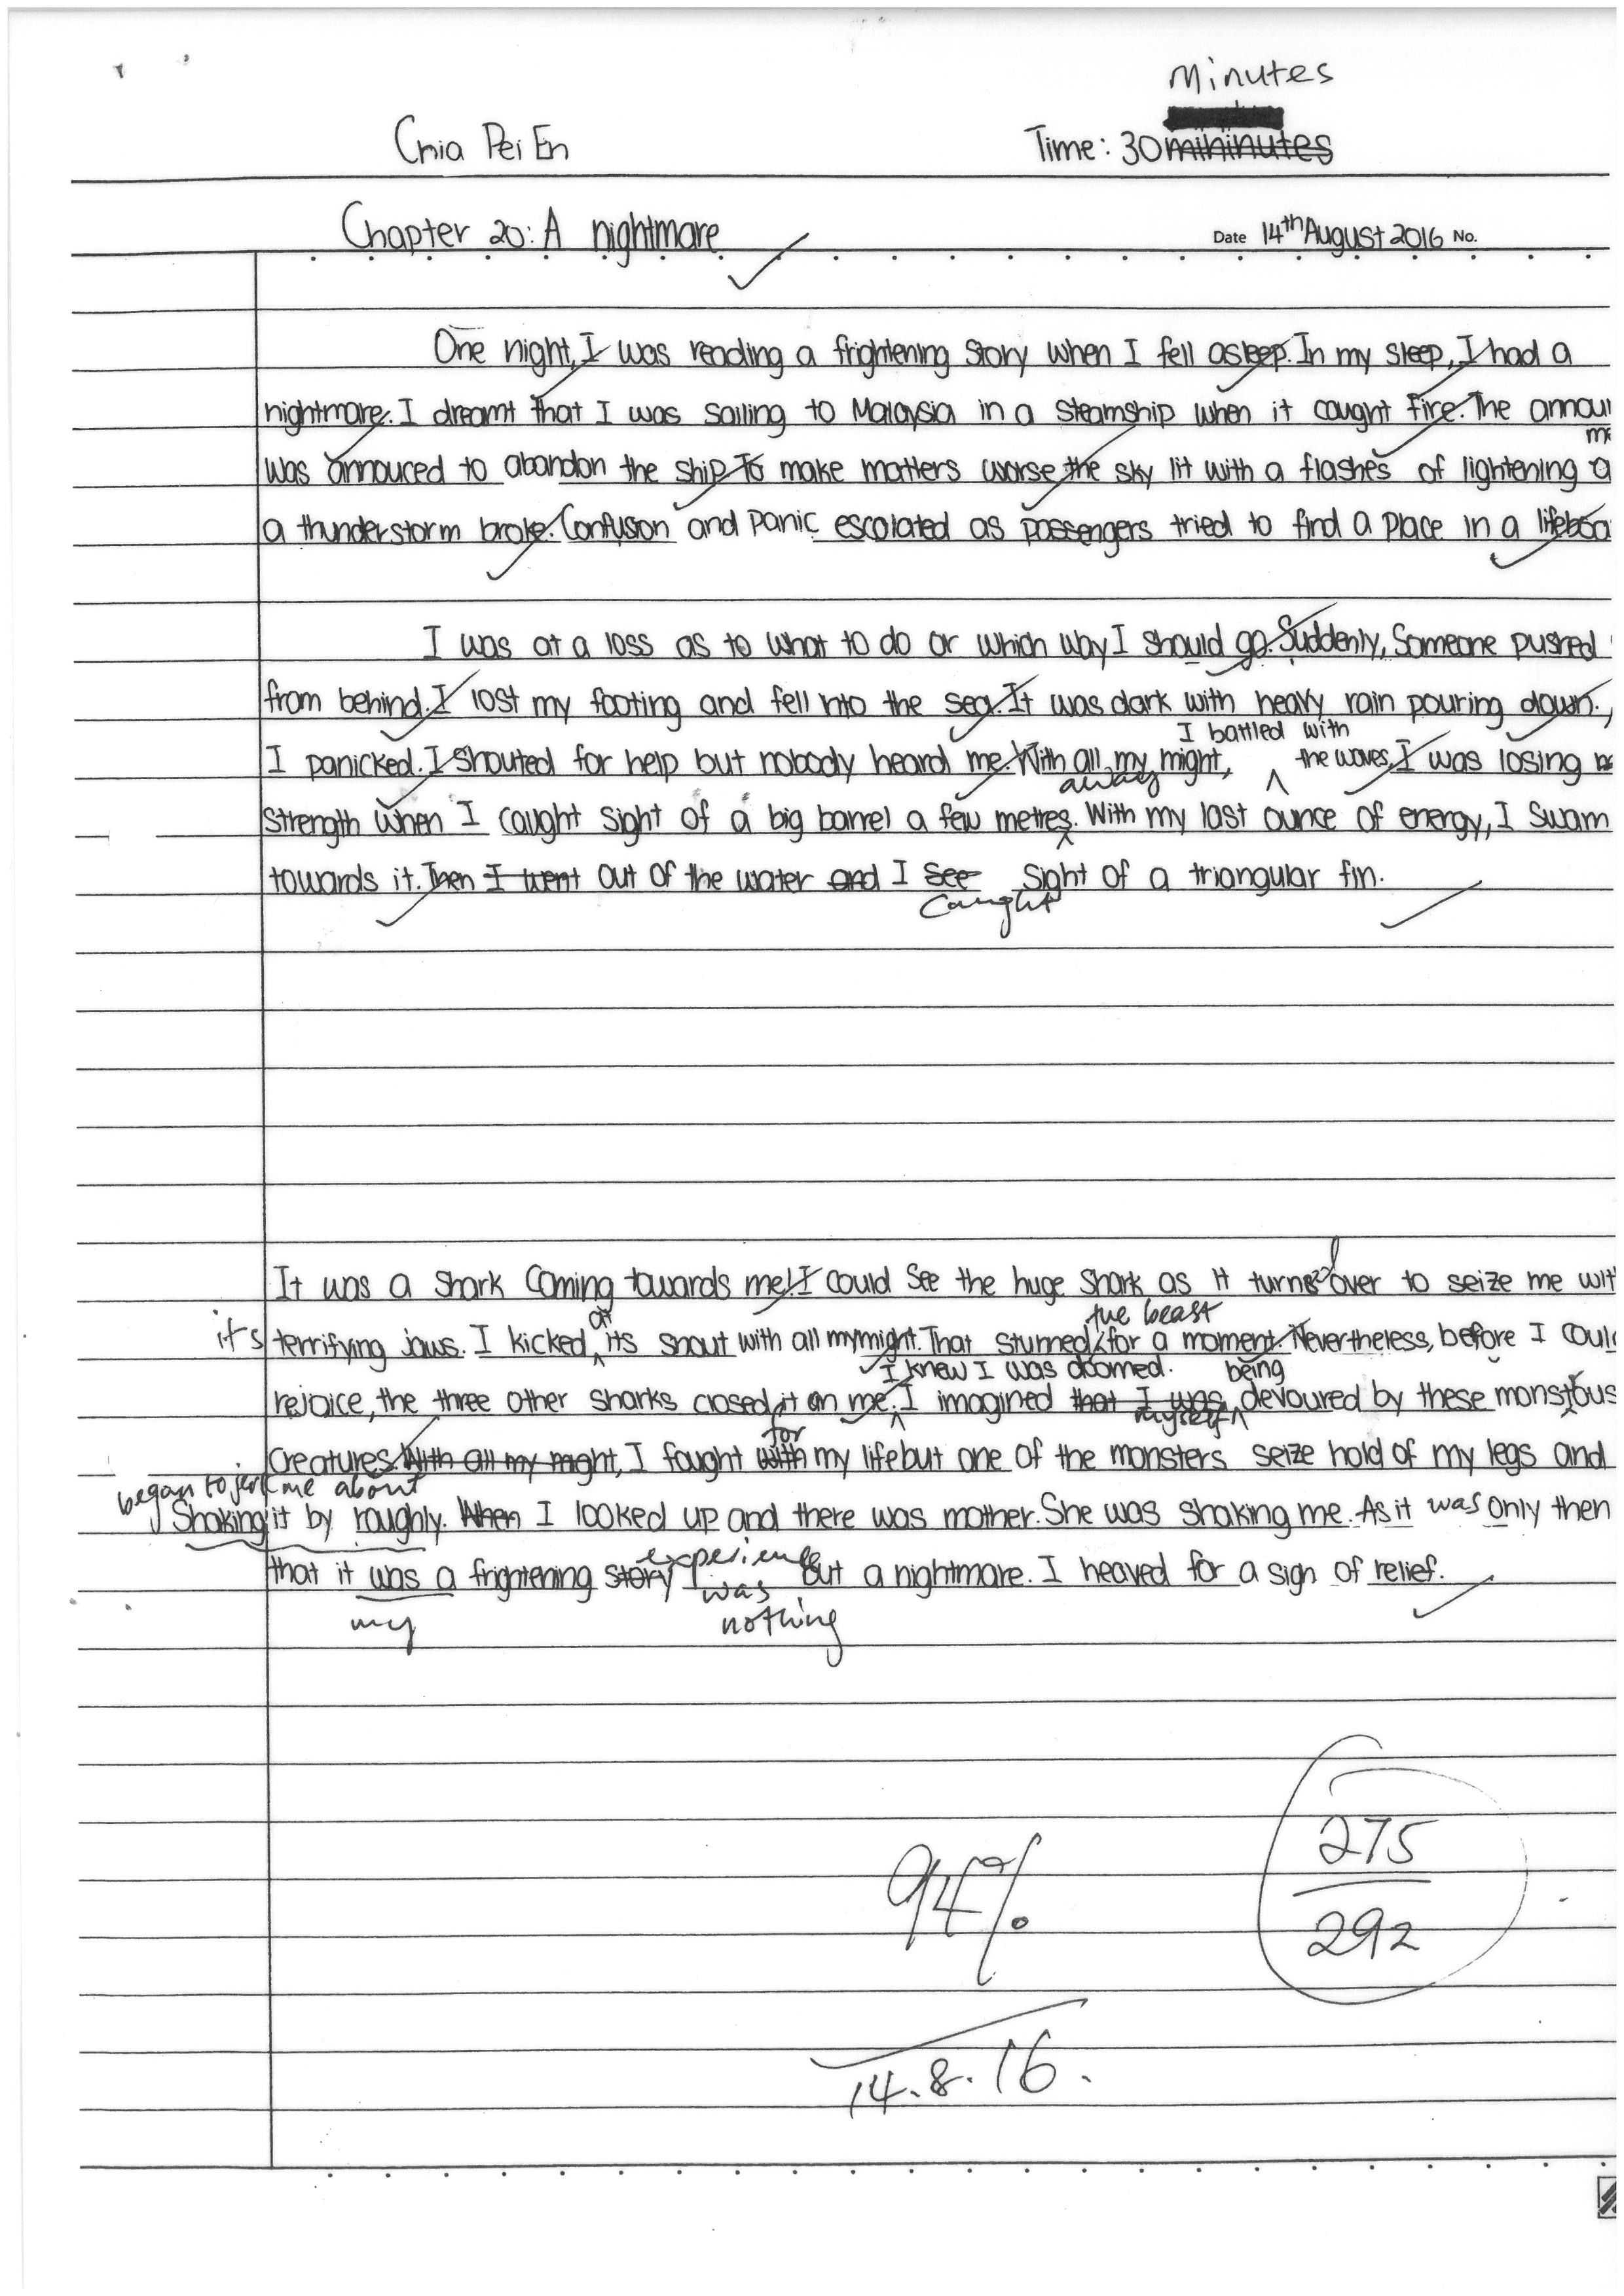 minutes
Chia Pei En Time: 30 mihinutes
Chapter 20: A nightmare Date 14th August 2016 No.
One night, I was reading a frightening story when I fell asleep. In my sleep, I had a
nightmare. I dreamt that I was sailing to Malaysia in a steamship when it caught fire. The
was annouced to abandon the ship. To make matters worse, the sky lit with a flashes of lightening
a thunderstorm broke. Confusion and panic escalated as passengers tried to find a place in a
I was at a loss as to what to do or which way I should go. Suddenly, someone pushed
from behind. I lost my footing and fell into the sea. It was dark with heavy rain pouring down.,
I battled with
I panicked. I shouted for help but nobody heard me. With all my might, the waves. I was losing
away
strength when I caught sight of a big barrel a few metres. With my last ounce of energy, I swam
towards it. Then I went out of the water and I see sight of a triangular fin.
caught
It was a shark coming towards me! I could see the huge shark as it turns over to seize me
at the beast
it's terrifying jaws. I kicked its snout with all my might. That stunned for a moment. Nevertheless, before I
I knew I was doomed. being
rejoice, the three other sharks closed it on me. I imagined that I was devoured by these monstrous
myself
for
creatures. With all my might, I fought with my life but one of the monsters seize hold of my legs and
began to jerk me about
shaking it by roughly. When I looked up and there was mother. She was shaking me. As it was only then
experience
that it was a frightening story but a nightmare. I heaved for a sign of relief.
my was nothing
94%
275
292
14.8.16.